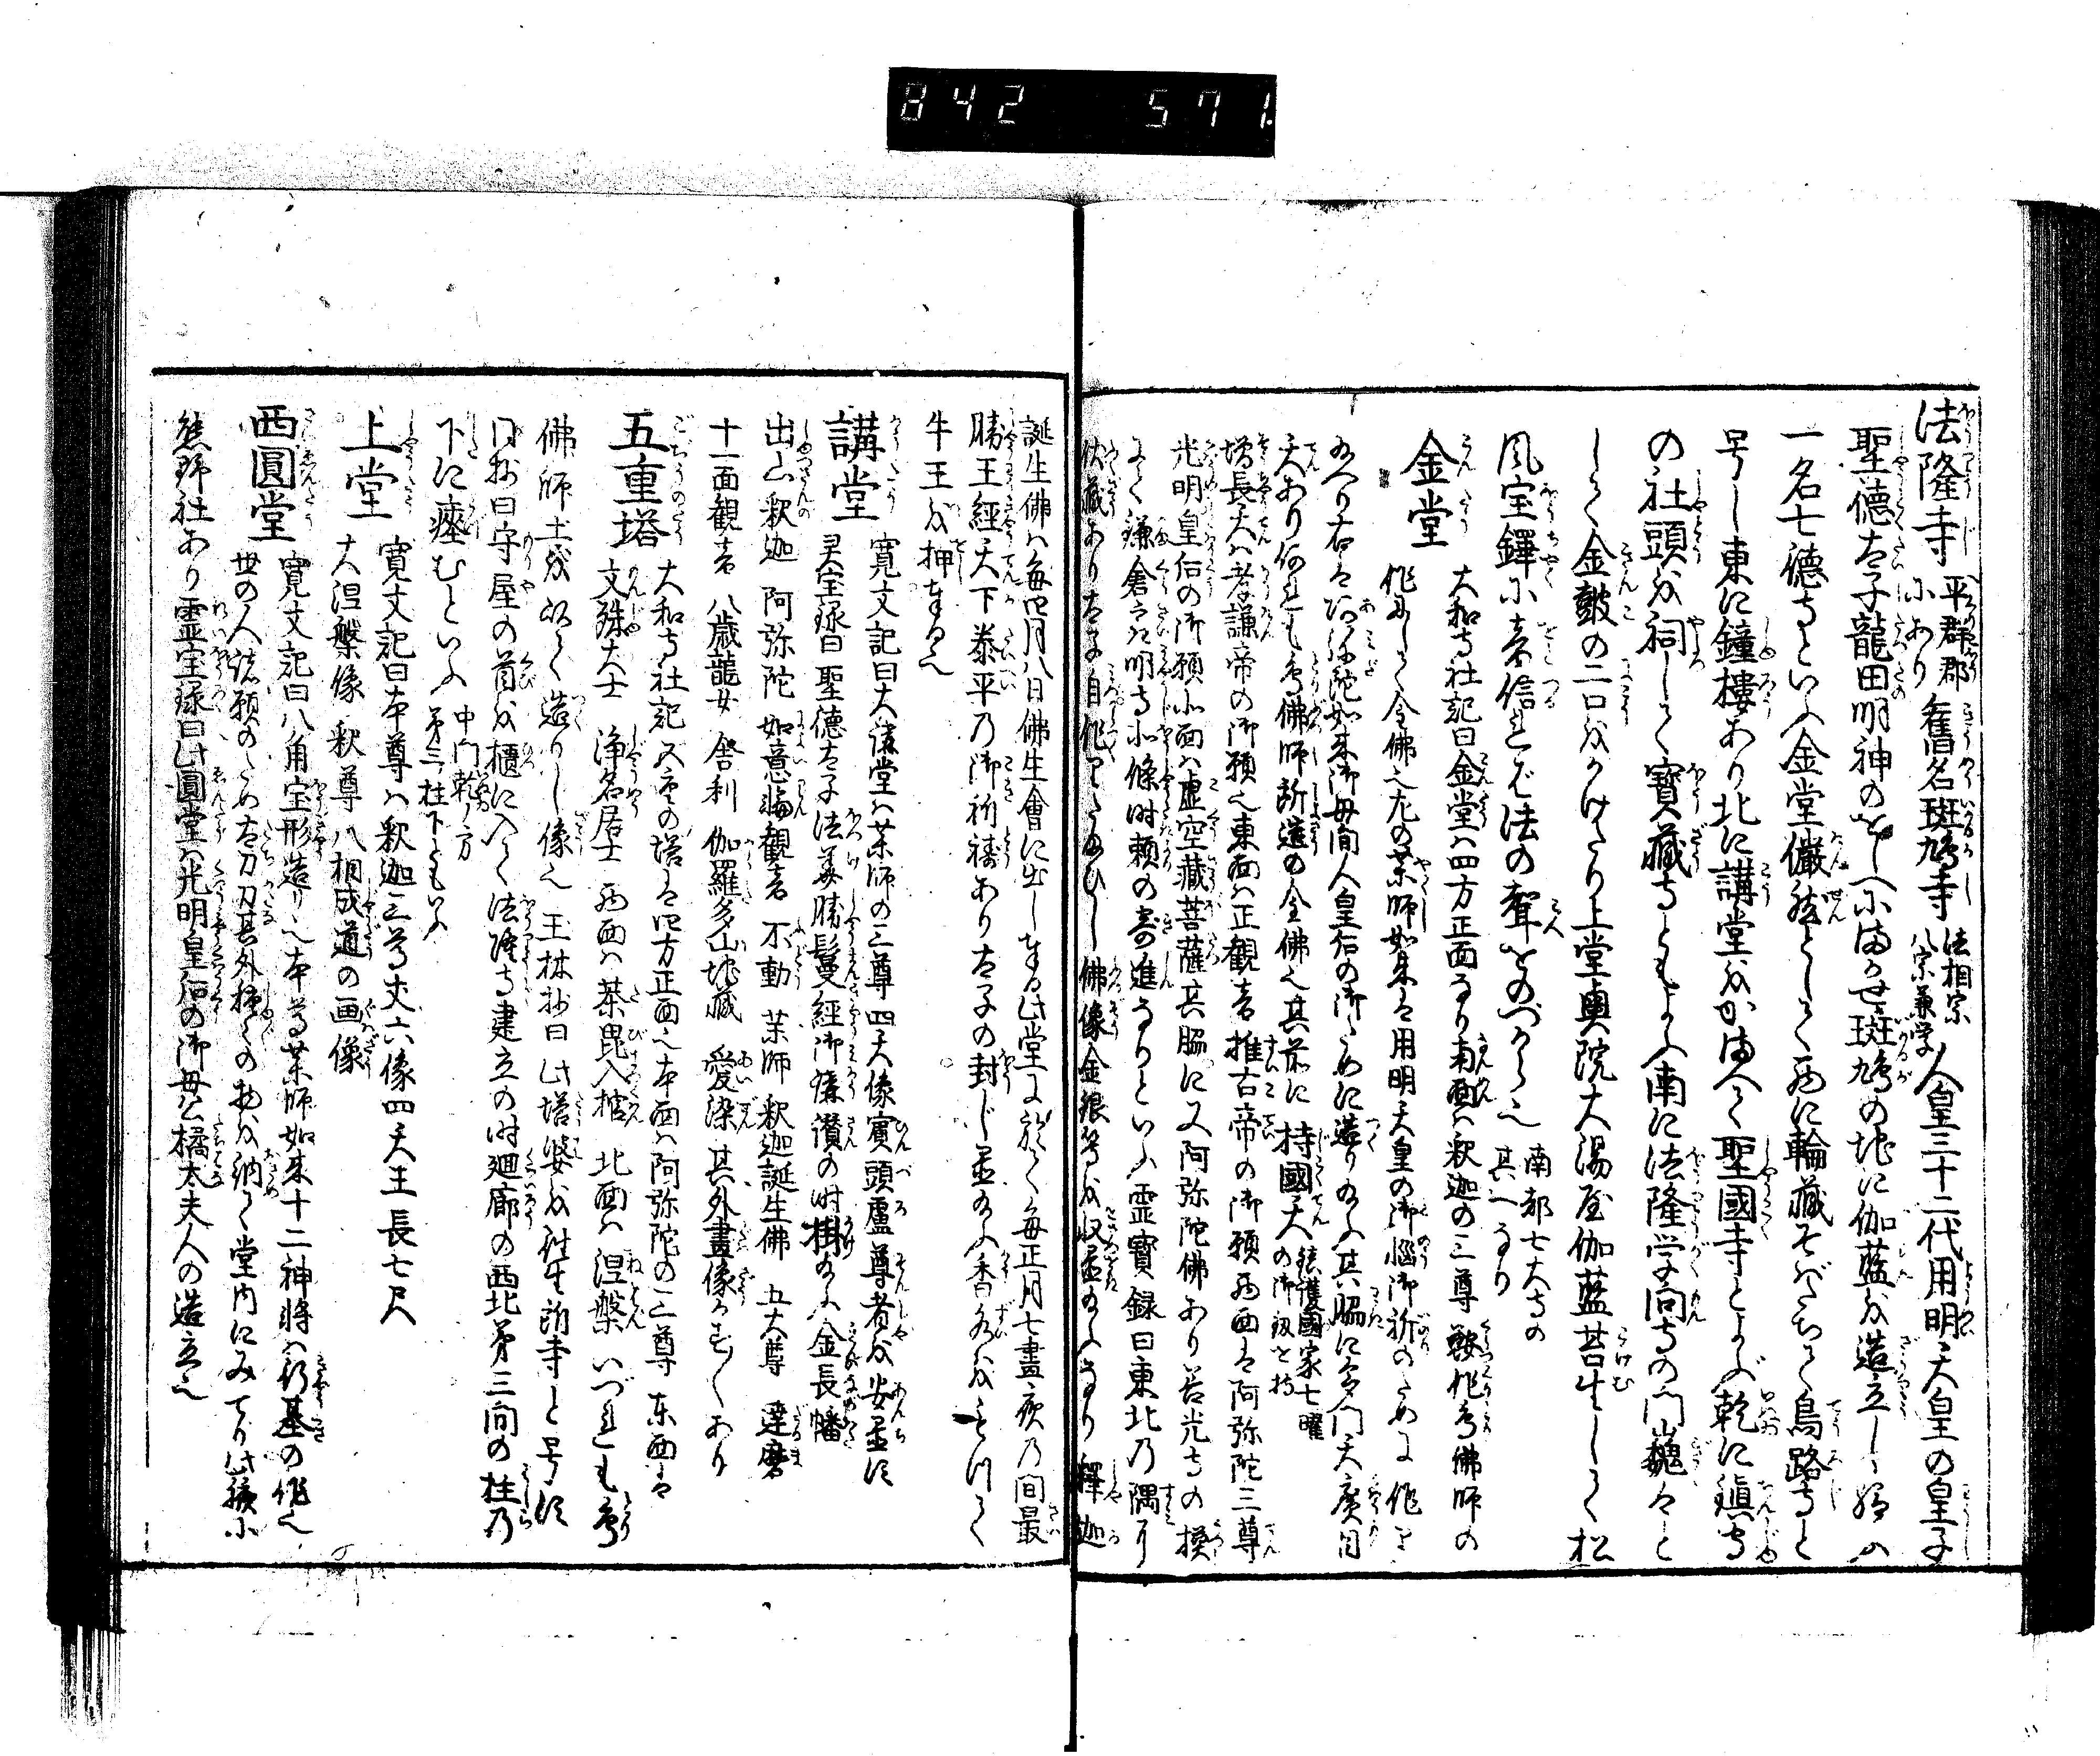 842 571.
法隆寺 平群郡郡にあり 舊名斑鳩寺 法相宗八宗兼学 人皇三十二代用明天皇の皇子
聖徳太子龍田明神のをしへにまかせ斑鳩の地に伽藍を造立し給ふ
一名七徳寺といふ金堂儼然として西に輪藏そばだちて鳥路寺と
号し東に鐘樓あり北に講堂をかまへて聖國寺とよぶ乾に鎮守
の社頭を祠して寶藏寺ともよふ南に法隆学問寺の門巍々と
して金皷の二口をかけたり上堂奥院大湯屋伽藍苔生して松
風宝鐸に音信れば法の聲をのづから也 南都七大寺の其一なり
金堂 大和寺社記曰金堂は四方正面なり南面は釈迦の三尊鞍作鳥佛師の
作にして金佛也左の薬師如来は用明天皇の御悩御祈のために作り
給へり右は阿弥陀如来御母間人皇后の御ために造り給ふ其脇に多門天廣目
天あり何れも鳥佛師所造の金佛也其前に持國天 鎮護國家七曜の御釼を持
増長天は孝謙帝の御願也東面は正観音推古帝の御願西面は阿弥陀三尊
光明皇后の御願北面は虚空藏菩薩其脇に又阿弥陀佛あり善光寺の模
にて鎌倉之最明寺北條時頼の寄進なりといふ霊寳録曰東北乃隅に
伏藏あり太子自作りたまひし佛像金銀等を収置給ふなり 釋迦
誕生佛は毎四月八日佛生會に出し奉る此堂に於て毎正月七晝夜乃間最
勝王經天下泰平乃御祈祷あり太子の封じ置給ふ香水をそゝて
牛王を押奉る也
講堂 寛文記曰大講堂は薬師の三尊四天像賓頭盧尊者を安置す
灵宝録曰聖徳太子法華勝鬘經御講讃の時掛給ふ金長幡
出山釈迦 阿弥陀 如意輪観音 不動 薬師 釈迦誕生佛 五大尊 達磨
十一面観音 八歳龍女 舎利 伽羅多山地藏 愛染 其外畫像かずゝあり
五重塔 大和寺社記五重の塔は四方正面也本面は阿弥陀の三尊東面は
文殊大士 浄名居士 西面は荼毘入棺 北面は涅槃 いづれも鳥
佛師土を以て造りし像也 玉林抄曰此塔婆を往生所寺と号す
同抄曰守屋の首を櫃に入て法隆寺建立の時廻廊の西北第三向の柱乃
下に瘞むといふ 中門乾ノ方第三柱下ともいふ
上堂 寛文記曰本尊は釈迦三尊丈六像四天王長七尺
大涅槃像 釈尊八相成道の画像
西圓堂 寛文記曰八角宝形造り也本尊薬師如来十二神將は行基の作也
世の人諸願のため太刀刀其外種々の物を納て堂内にみてり此㯮に
熊野社あり霊宝録曰此圓堂は光明皇后の御母公橘太夫人の造立也